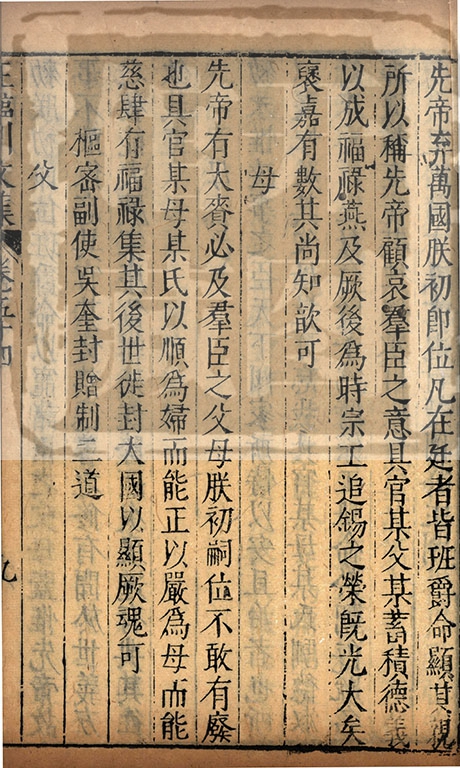 先帝弃萬國朕初即位凡在廷者皆班爵命顯其親
所以稱先帝顧哀羣臣之意具官某父某蓄積德義
以成福祿燕及厥後爲時宗工追錫之榮既光大矣
褒嘉有數其尚知歆可
母
先帝有大賚必及羣臣之父母朕初嗣位不敢有廢
也具官某母某氏以順爲婦而能正以嚴爲母而能
慈肆有福祿集其後世徙封大國以顯厥魂可
樞密副使吳奎封贈制二道
父
王臨川文集 卷五十四
九